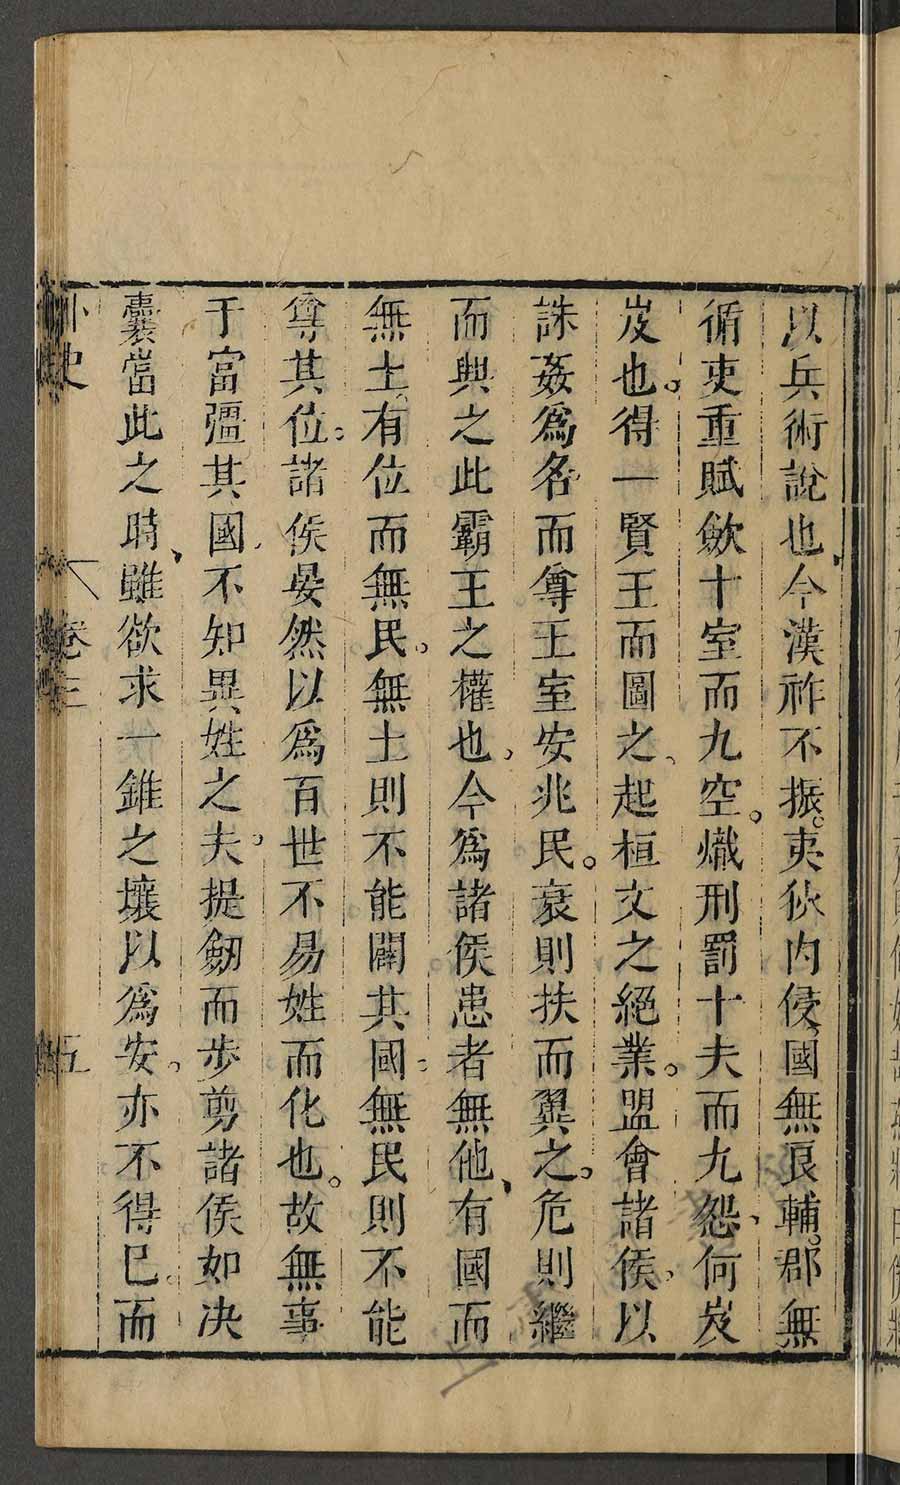 以兵術說也今漢祚不振夷狄内侵國無良輔郡無
循吏重賦斂十室而九空熾刑罰十夫而九怨何岌
岌也得一賢王而圖之起桓文之絕業盟會諸侯以
誅姦爲名而尊王室安兆民衰則扶而翼之危則繼
而興之此霸王之權也今爲諸侯患者無他有國而
無土有位而無民無土則不能闢其國無民則不能
尊其位諸侯晏然以爲百世不易姓而化也故無事
于富彊其國不知異姓之夫提劒而步剪諸侯如決
囊當此之時雖欲求一錐之壤以爲安亦不得已而
外史 卷三 五